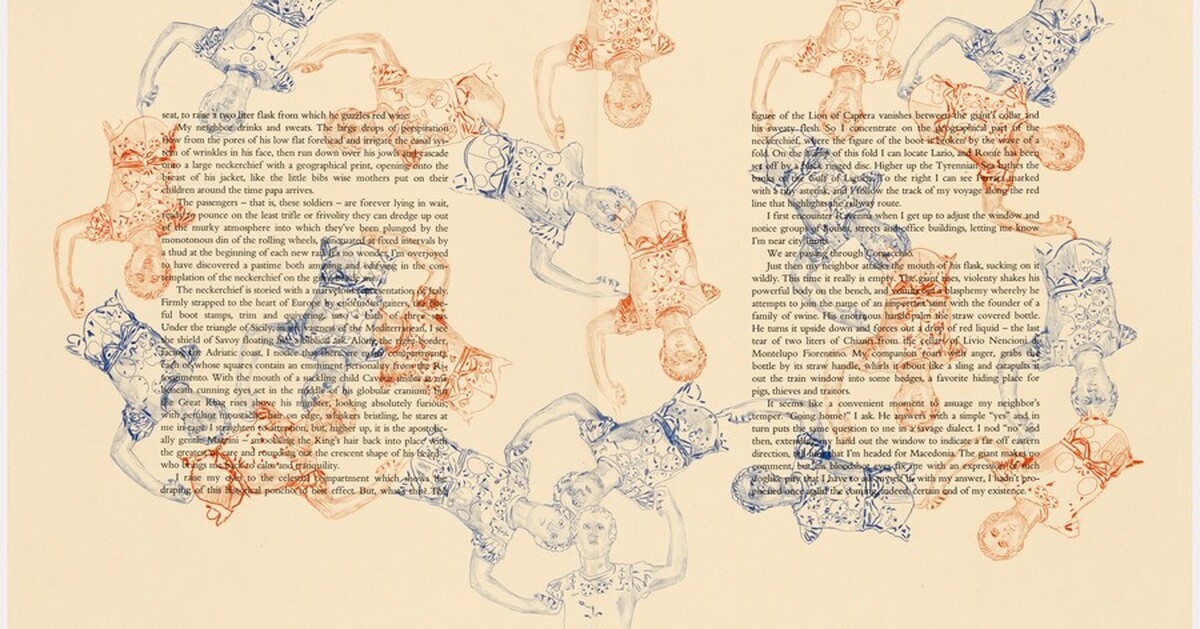 seat, to raise a two liter flask from which he guzzles red wine.
My neighbor drinks and sweats. The large drops of perspiration
flow from the pores of his low flat forehead and irrigate the canal sys-
tem of wrinkles in his face, then run down over his jowls and cascade
onto a large neckerchief with a geographical print, opening onto the
breast of his jacket, like the little bibs wise mothers put on their
children around the time papa arrives.
The passengers – that is, these soldiers – are forever lying in wait,
ready to pounce on the least trifle or frivolity they can dredge up out
of the murky atmosphere into which they've been plunged by the
monotonous din of the rolling wheels, punctuated at fixed intervals by
a thud at the beginning of each new rail. It's no wonder I'm overjoyed
to have discovered a pastime both amusing and edifying in the con-
templation of the neckerchief on the
The neckerchief is storied with a marvelous representation of Italy.
Firmly strapped to the heart of Europe by enormous gaiters, the
ful boot stamps, trim and quivering, into a bath of three
Under the triangle of Sicily, in the vastness of the Mediterranean, I see
the shield of Savoy floating like a biblical ark. Along the right border,
facing the Adriatic coast, I notice that there are compartments,
each of whose squares contain an eminent personality from the Ri-
sorgimento. With the mouth of a suckling child Cavour smiles at me
beneath cunning eyes set in the middle of his globular cranium. But
the Great King rises above his minister, looking absolutely furious;
with petulant moustache, hair on edge, whiskers bristling, he stares at
me in rage. I straighten to attention, but, higher up, it is the apostolic-
ally gentle Mazzini – smoothing the King's hair back into place with
the greatest of care and rounding out the crescent shape of his beard –
who brings me back to calm and tranquility.
I raise my eyes to the celestial compartment which shows the
draping of this historical poncho to best effect. But, what's this? The
figure of the Lion of Caprera vanishes between the giant's collar and
his sweaty flesh. So I concentrate on the geographical part of the
neckerchief, where the figure of the boot is broken by the wave of a
fold. On the of this fold I can locate Lazio, and Rome has been
set off by a black ringed disc. Higher up the Tyrennian Sea bathes the
banks of the Gulf of Liguria. To the right I can see Ferrara marked
with a tiny asterisk, and I follow the track of my voyage along the red
line that highlights the railway route.
I first encounter Ravenna when I get up to adjust the window and
notice groups of houses, streets and office buildings, letting me know
I'm near city limits.
We are passing through Comacchio.
Just then my neighbor attacks the mouth of his flask, sucking on it
wildly. This time it really is empty. The giant rises, violently shakes his
powerful body on the bench, and vomits out a blasphemy whereby he
attempts to join the name of an important saint with the founder of a
family of swine. His enormous hands palm the straw covered bottle.
He turns it upside down and forces out a drop of red liquid – the last
tear of two liters of Chianti from the cellars of Livio Nencioni di
Montelupo Fiorentino. My companion roars with anger, grabs the
bottle by its straw handle, whirls it about like a sling and catapults it
out the train window into some hedges, a favorite hiding place for
pigs, thieves and traitors.
It seems like a convenient moment to assuage my neighbor's
temper. "Going home?" I ask. He answers with a simple "yes" and in
turn puts the same question to me in a savage dialect. I nod "no" and
then, extending my hand out the window to indicate a far off eastern
direction, that I'm headed for Macedonia. The giant makes no
comment, but his bloodshot eyes fix me with an expression of such
doglike pity that I have to ask myself if, with my answer, I hadn't pro-
nounced once again the coming, indeed, certain end of my existence.